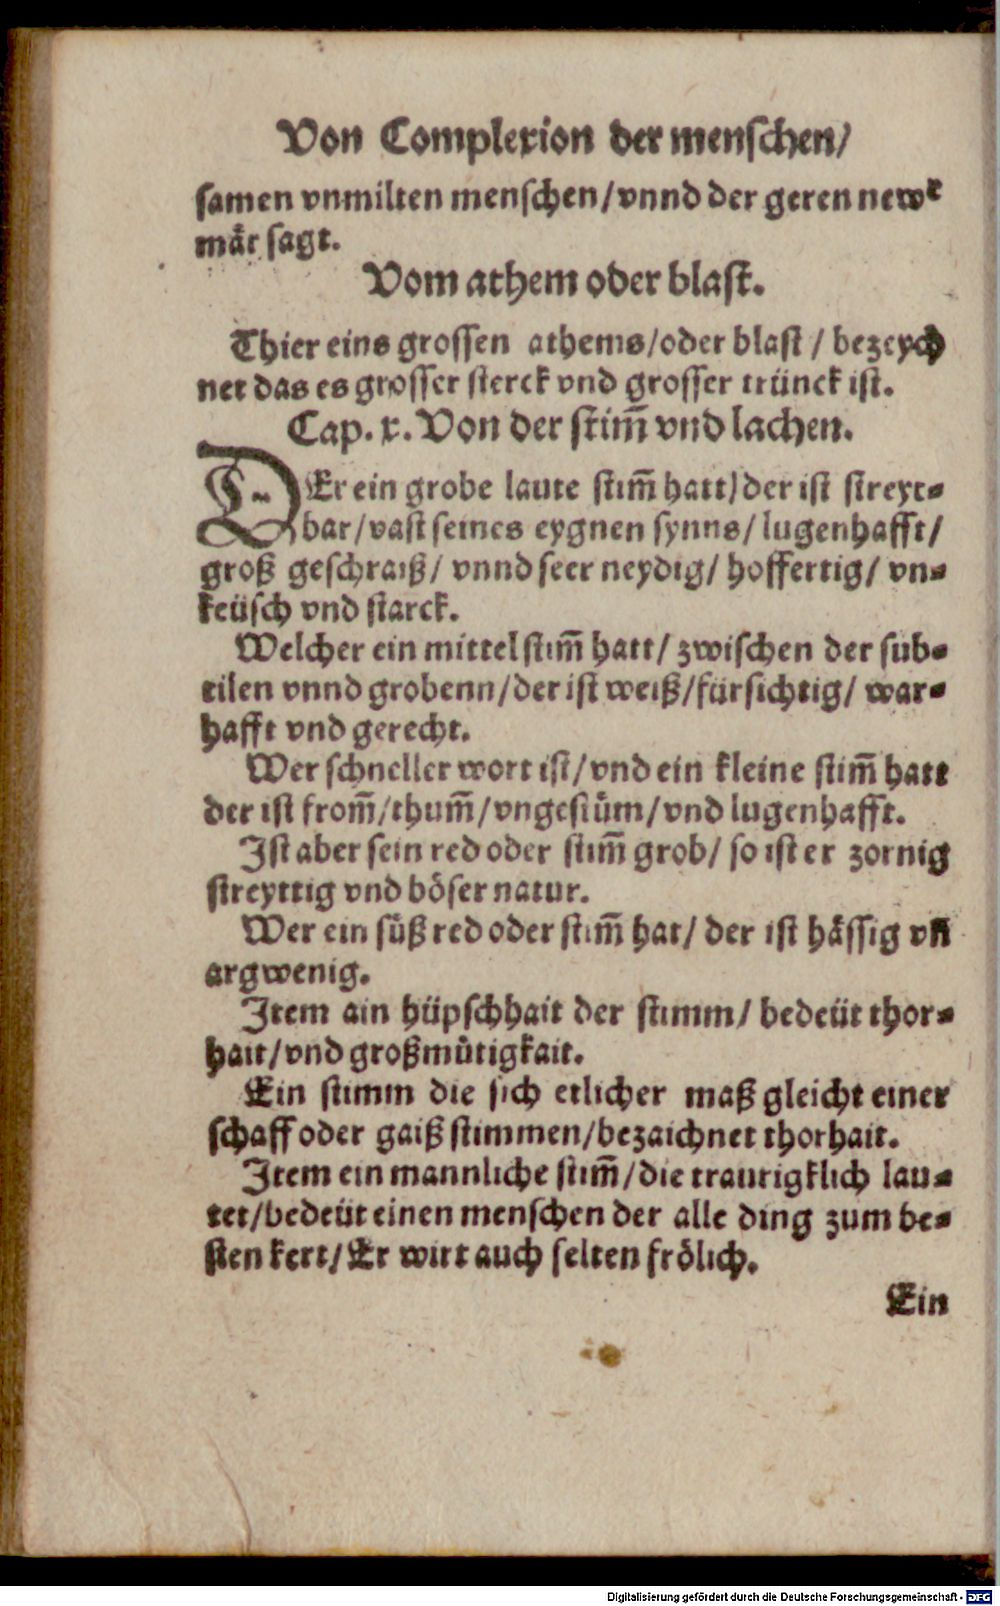 Von Complexion der menschen/
samen vnmilten menschen/vnnd der geren newe
mär sagt.
Vom athem oder blast.
Thier eins grossen athems/oder blast / bezeych
net das es grosser sterck vnd grosser trünck ist.
Cap. x. Von der stim̃ vnd lachen.
DEr ein grobe laute stim̃ hatt/der ist streyt⸗
bar/vast seines eygnen synns/lugenhafft/
groß geschraiß/ vnnd seer neydig/ hoffertig/ vn⸗
keüsch vnd starck.
Welcher ein mittel stim̃ hatt/ zwischen der sub⸗
tilen vnnd grobenn/der ist weiß/fürsichtig/ war⸗
hafft vnd gerecht.
Wer schneller wort ist/vnd ein kleine stim̃ hatt
der ist from̃/thum̃/vngestüm/vnd lugenhafft.
Ist aber sein red oder stim̃ grob/ so ist er zornig
streyttig vnd böser natur.
Wer ein süß red oder stim̃ hat/ der ist hässig vñ
argwenig.
Item ain hüpschhait der stimm/ bedeüt thor⸗
hait/vnd großmütigkait.
Ein stimm die sich etlicher maß gleicht einer
schaff oder gaiß stimmen/bezaichnet thorhait.
Item ein mannliche stim̃/die traurigklich lau⸗
tet/bedeüt einen menschen der alle ding zum be⸗
sten kert/Er wirt auch selten frölich.
Ein
Digitalisierung gefördert durch die Deutsche Forschungsgemeinschaft - DFG